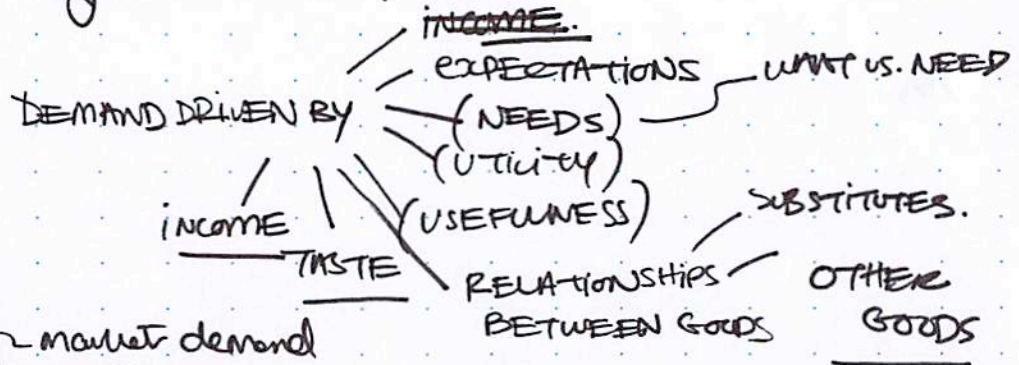 INCOME.
EXPECTATIONS
WANT VS. NEED
DEMAND DRIVEN BY
(NEEDS)
(UTILITY)
(USEFULNESS)
SUBSTITUTES.
INCOME
TASTE
RELATIONSHIPS
BETWEEN GOODS
OTHER
GOODS
market demand